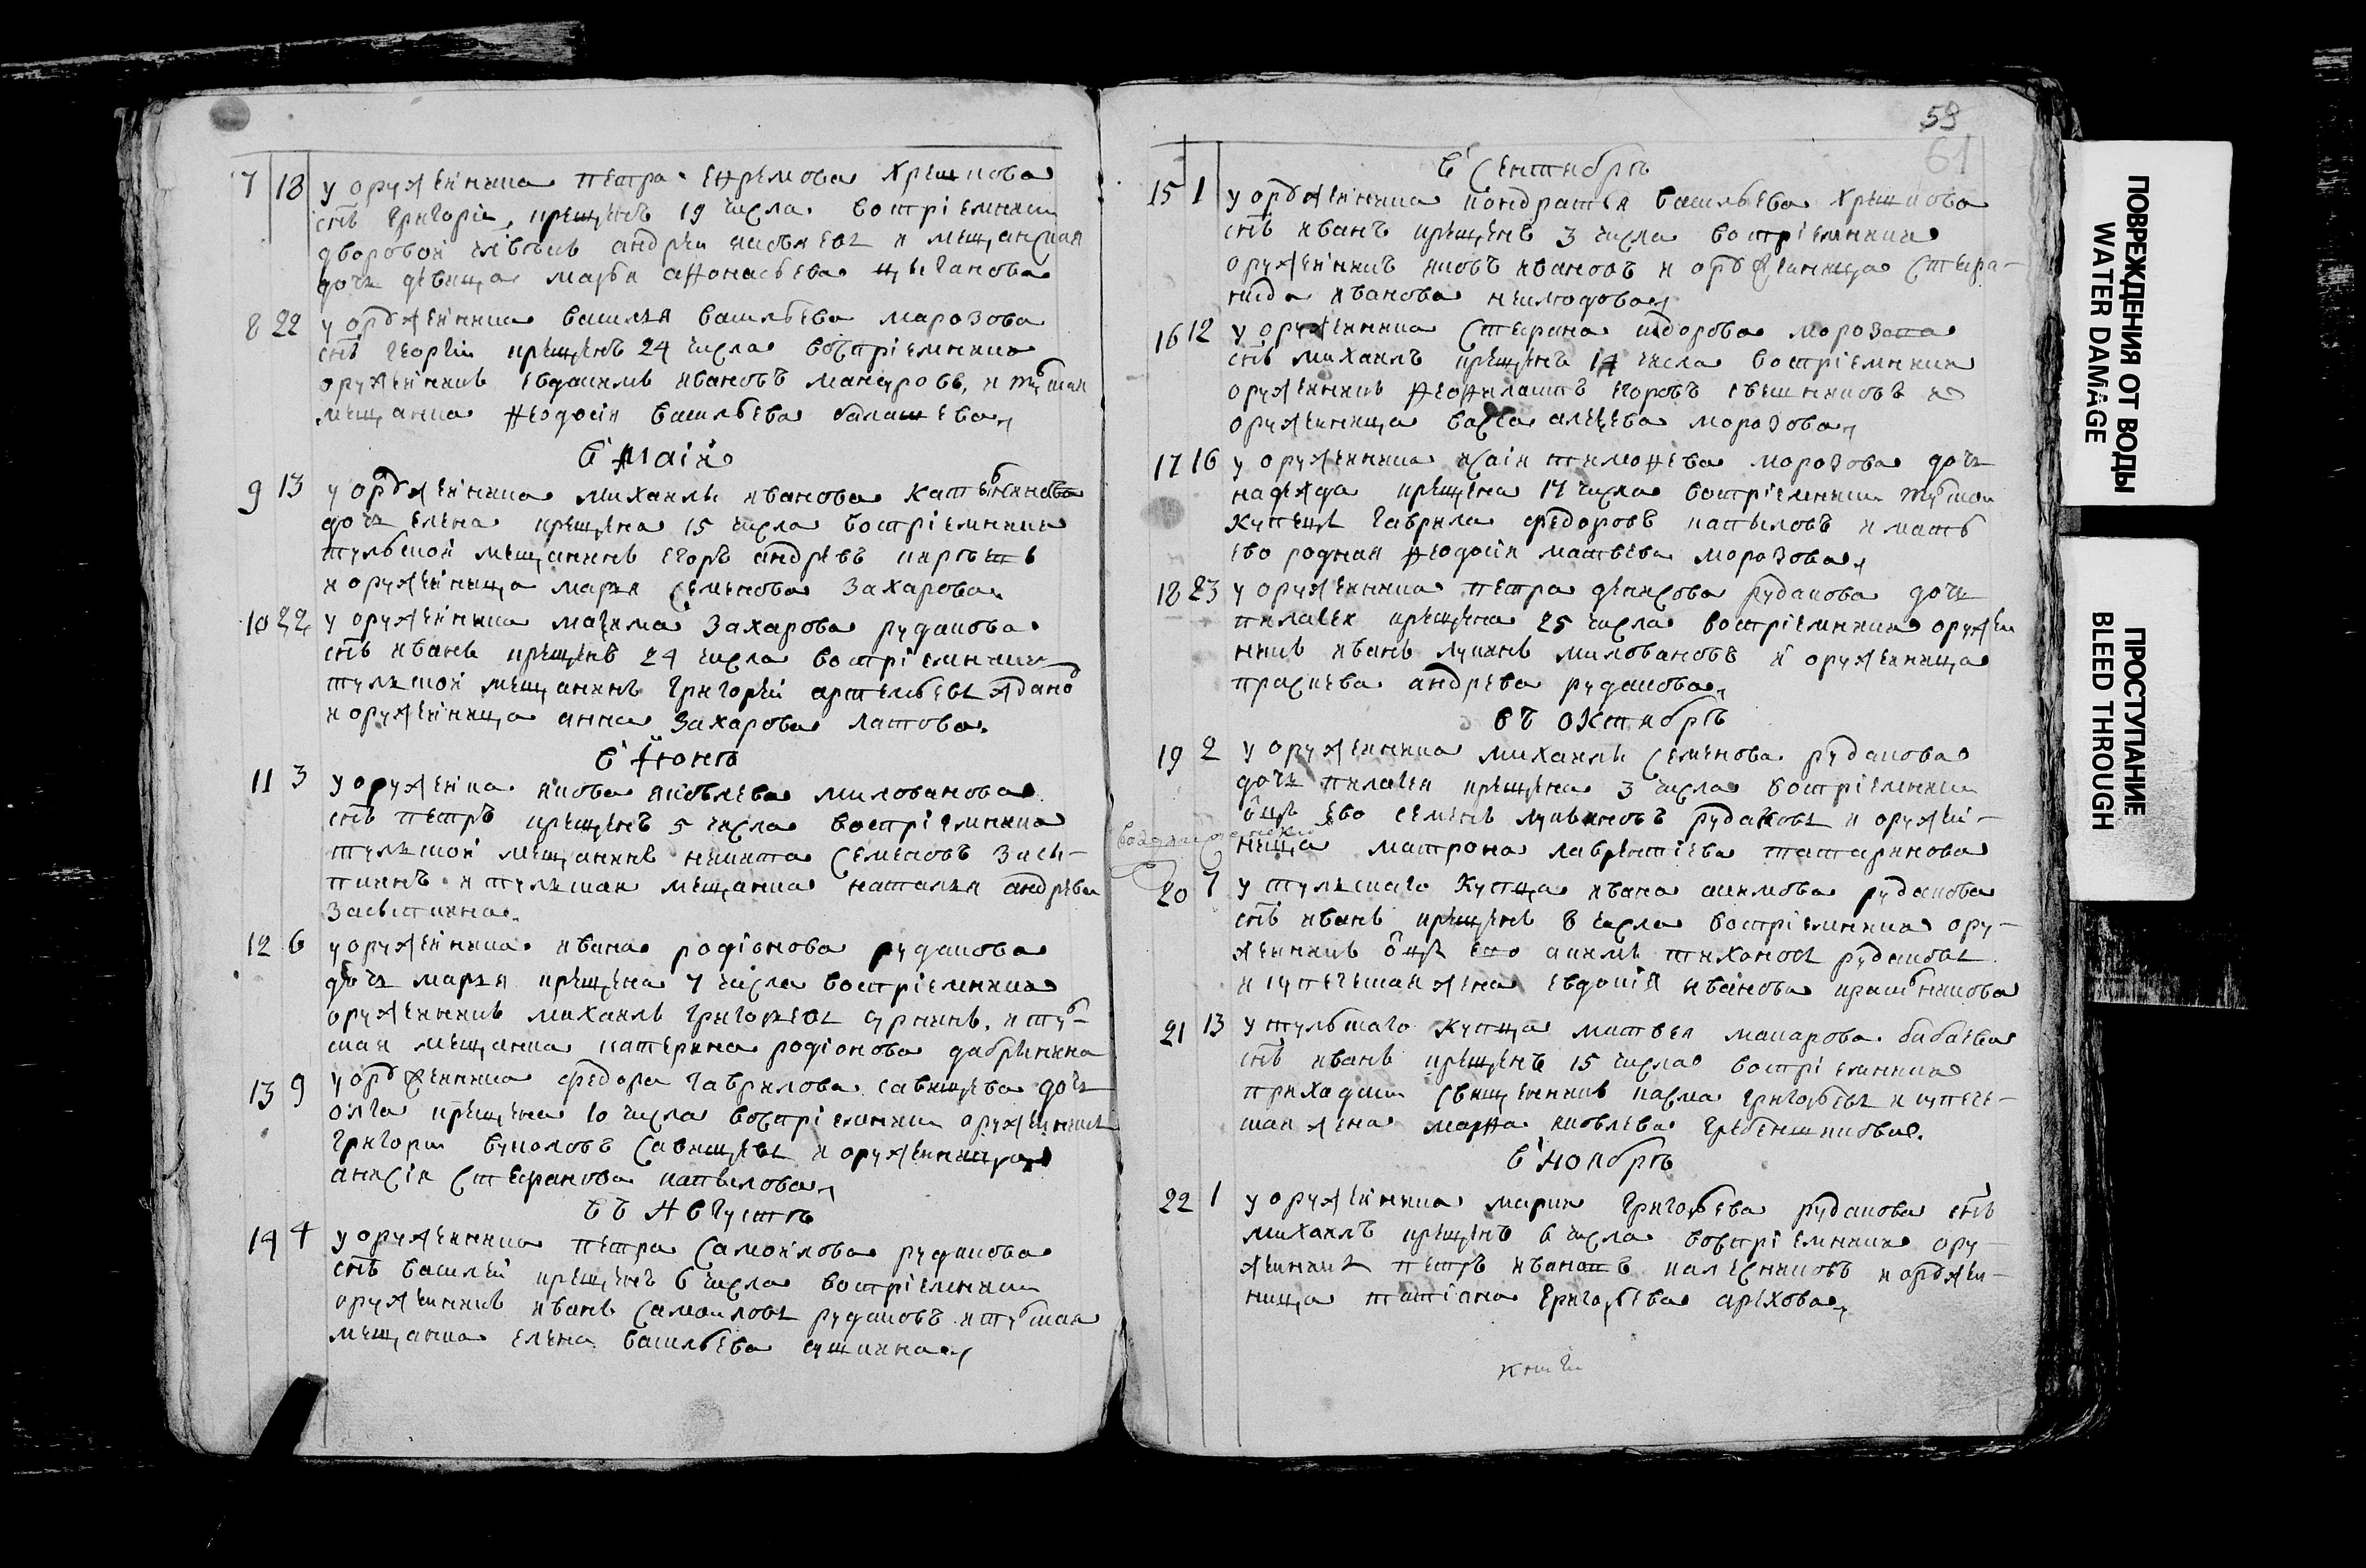 7 18 у оружейника петра ефремова хрешнова
снъ григорій, крещенъ 19 числа восприемники
дворовой члвѣкъ андрей яковлевъ и мещанская
дочь девица марья афонасьева цыганова
8 22 у оружейника василья васильева марозова
снъ георгій крещенъ 24 числа восприемники
оружейникъ евдокимъ ивановъ мануровъ, и тульская
мещанка феодосия васильева балашева
в маіи
9 13 у оружейника михаилы иванова
дочь елена крещена 15 числа восприемники
тульской мещанинъ егоръ андревъ
и оружейница марья семенова захарова
10 22 у оружейника максима захарова рудакова
снъ иванъ крещенъ 24 числа восприемники
тульской мещанинъ григорей артемьевъ ждано
и оружейница анна захарова латова.
в июнѣ
11 3 у оружейника якова яковлева милованова
снъ петръ крещенъ 5 числа восприемники
тульской мещанинъ никита семеновъ засы-
пкинъ и тульская мещанка наталья андрева
засыпкина.
12 6 у оружейника ивана родіонова рудакова
дочь марья крещена 7 числа восприемники
оружейникъ михаилъ григорьевъ суркинъ, и туль-
ская мещанка катерина родіонова дабрынина
13 9 у оружейника федора гаврилова савищева дочь
олга крещена 10 числа восприемники оружейникъ
григории вуколовъ савищевъ и оружейница
анисія стефанова капылова
въ августѣ
14 4 у оружейника петра самойлова рудакова
снъ василей крещенъ 6 числа восприемники
оружейникъ иванъ самоиловъ рудаковъ и тульская
мещанка елена васильева сушкина
58
61
в сентябрѣ
15 1 у оружейника кондратья васильева хрешнова
снъ иванъ крещенъ 3 числа восприемники
оружейникъ яковъ ивановъ и оружейница стефа-
нида иванова неклюдова
16 12 у оружейника стефана сидорова морозова
снъ михаилъ крещенъ 14 числа восприемники
оружейникъ феофилактъ егоровъ свешниковъ и
оружейница васса алексева морозова
17 16 у оружейника исаія тимофева морозова дочь
надежда крещена 17 числа восприемники тульской
купецъ гаврила федоровъ капыловъ и мать
ево родная феодосия матвева морозова
18 23 у оружейника петра денисова рудакова дочь
пилагея крещена 25 числа восприемники оружей
никъ иванъ лукинъ миловановъ и оружейница
прасковья андрева рудакова
въ октябрѣ
19 2 у оружейника михаилы семенова рудакова
дочь пилагея крещена 3 числа восприемники
оцъ ево семенъ лукьяновъ рудаковъ и оружей-
ница матрона лаврентіева татаринова
20 7 у тульскаго купца ивана акимова рудакова
снъ иванъ крещенъ 8 числа восприемники ору-
жейникъ оцъ ево акимъ тихановъ рудаковъ
и купеческая жена евдокия иванова красильникова
21 13 у тульскаго купца матвея макарова бабаева
снъ иванъ крещенъ 15 числа восприемники
приходкии священникъ касма григорьевъ и купече-
ская жена марфа яковлева гребенщикова.
в ноябрѣ
22 1 у оружейника марки григорьева рудакова снъ
михаилъ крещенъ 6 числа восприемники ору-
жейникъ петръ ивановъ калесниковъ и оружей-
ница татіана григорьева арехова
книги
ПОВРЕЖДЕНИЯ ОТ ВОДЫ
WATER DAMAGE
ПРОСТУПАНИЕ
BLEED THROUGH